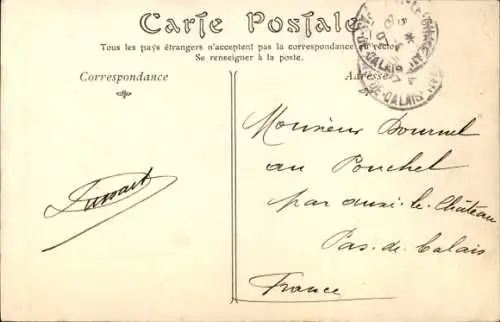 Carte Postale
Tous les pays étrangers n'acceptent pas la correspondance au recto
Se renseigner à la poste.
Correspondance
Adresse
PAS-DE-CALAIS
Monsieur Dournel
au Ponchel
par auxi-le-Château
Pas-de-Calais
France